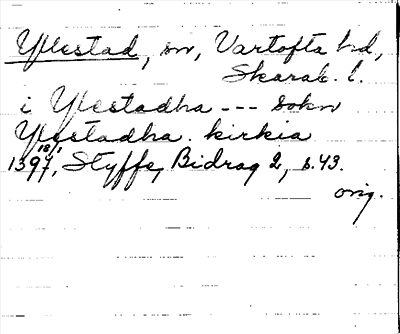 Yllestad, sn, Vartofta hd,
Skarab. l.
i Ylestadha --- sokn
Ylestadha kirkia
1397 18/1, Styffe, Bidrag 2, s. 43.
orig.